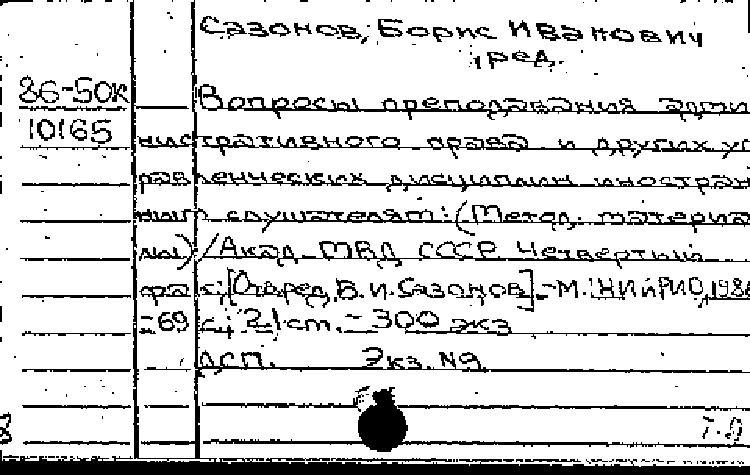 Сазонов, Борис Иванович
, ред.
86-50к
Вопросы преподавания адми
10165
нистративного права и других уп
равленческих дисциплин иностран
ным слушателям: (Метод. материа
лы) / Акад. МВД СССР. Четвертый
фак; [Отв. ред. Б. И. Сазонов]. - М.: НИиРИО, 1986
- 69 с.; 21 см. - 300 экз
ДСП. Экз. №